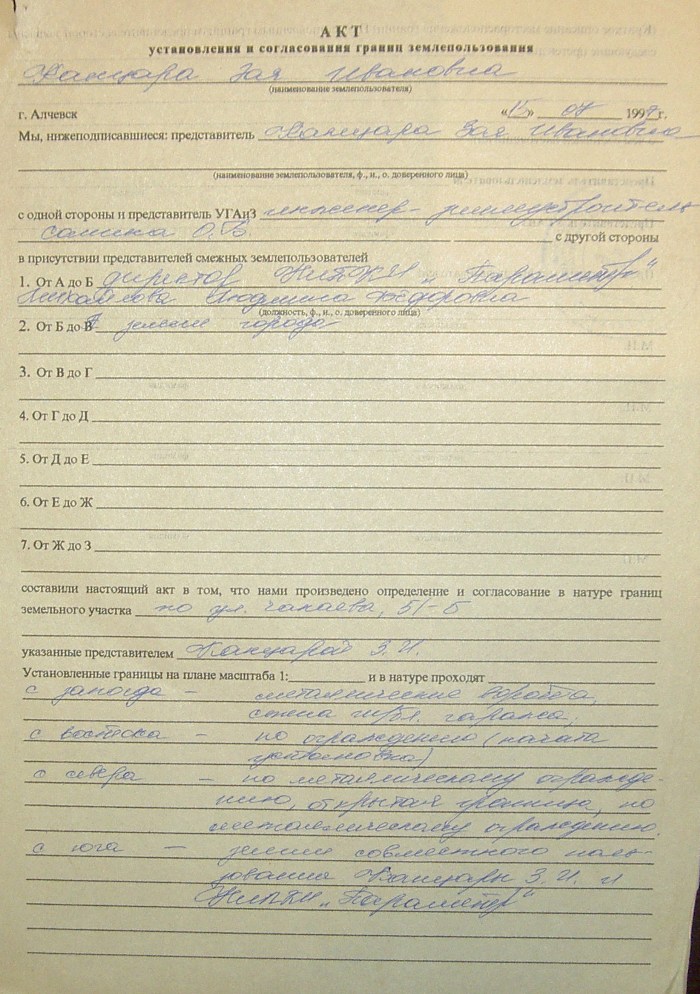 АКТ
установления и согласования границ землепользования
Зоя Ивановна
(наименование землепользователя)
г. Алчевск «15» 07 1997г.
Мы, нижеподписавшиеся: представитель Зоя Ивановна
(наименование землепользователя, ф., и., о. доверенного лица)
с одной стороны и представитель УГАиЗ инженер-землеустроитель
О.В. с другой стороны
в присутствии представителей смежных землепользователей
1. От А до Б директор "Параметр"
Людмила Фёдоровна
(должность, ф., и., о. доверенного лица)
2. От Б до земли города
3. От В до Г
4. От Г до Д
5. От Д до Е
6. От Е до Ж
7. От Ж до З
составили настоящий акт в том, что нами произведено определение и согласование в натуре границ
земельного участка по ул. Чапаева, 51-Б
указанные представителем З.И.
Установленные границы на плане масштаба 1: и в натуре проходят
с запада – металлические ворота,
стена гаража;
с востока – по ограждению (начата
установка)
с севера – по металлическому огражде-
нию, открытая граница, по
металлическому ограждению.
с юга – земли совместного поль-
зования З.И. и
"Параметр"